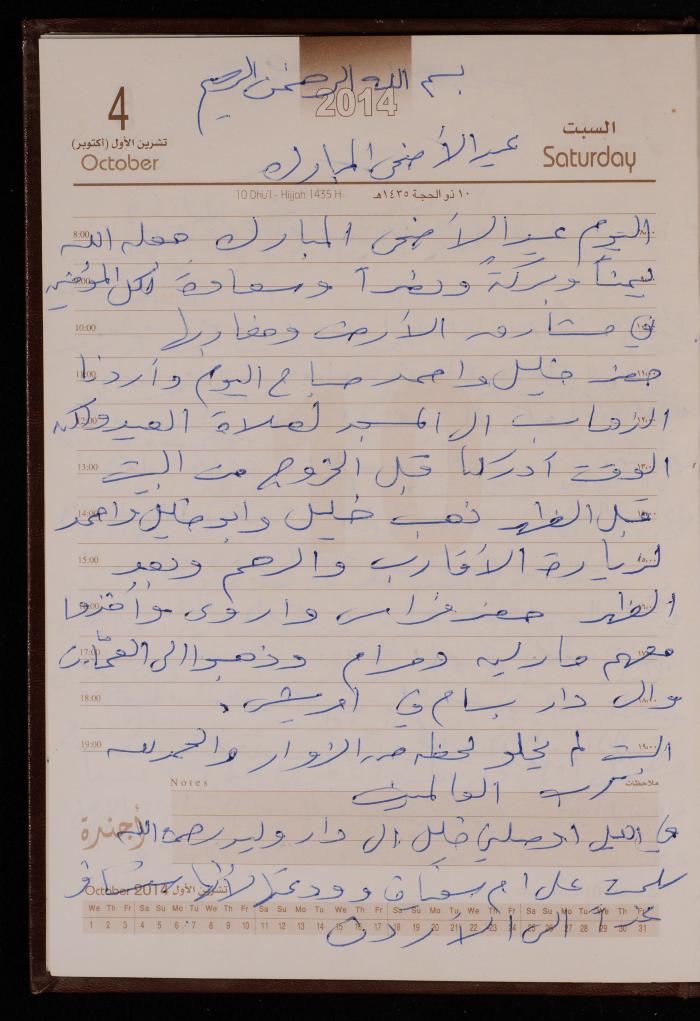 بسم الله الرحمن الرحيم
2014
4
تشرين الأول (أكتوبر)
October
السبت
Saturday
عيد الأضحى المبارك
10 Dhu'l - Hijjah 1435 H
١٠ ذو الحجة ١٤٣٥هـ
8:00
اليوم عيد الأضحى المبارك جعله الله
يمناً وبركةً ونصراً وسعادة لكل المؤمنين
10:00
في مشارق الأرض ومغاربها
11:00
حضر خليل واحمد صباح اليوم وأردنا
12:00
الذهاب الى المسجد لصلاة العيد ولكن
13:00
الوقت أدركنا قبل الخروج من البيت
14:00
قبل الظهر ذهب خليل وابو خليل واحمد
15:00
لزيارة الأقارب والرحم وبعد
الظهر حضر فراس واروى وأخذوا
17:00
معهم مارلين ومرام وذهبوا الى العمات
18:00
والى دار بسام في
19:00
البيت لم يخلو لحظة من الزوار والحمد لله
Notes
ملاحظات
رب العالمين
أجندة
في الليل اوصلني خليل الى دار وليد رحمه الله
October 2014 تشرين الأول
سلمت على ام سفيان وودعتها لأنها ستسافر
We Th Fr Sa Su Mo Tu We Th Fr Sa Su Mo Tu We Th Fr Sa Su Mo Tu We Th Fr Sa Su Mo Tu We Th Fr
1 2 3 4 5 6 7 8 9 10 11 12 13 14 15 16 17 18 19 20 21 22 23 24 25 26 27 28 29 30 31
غداً الى الأردن